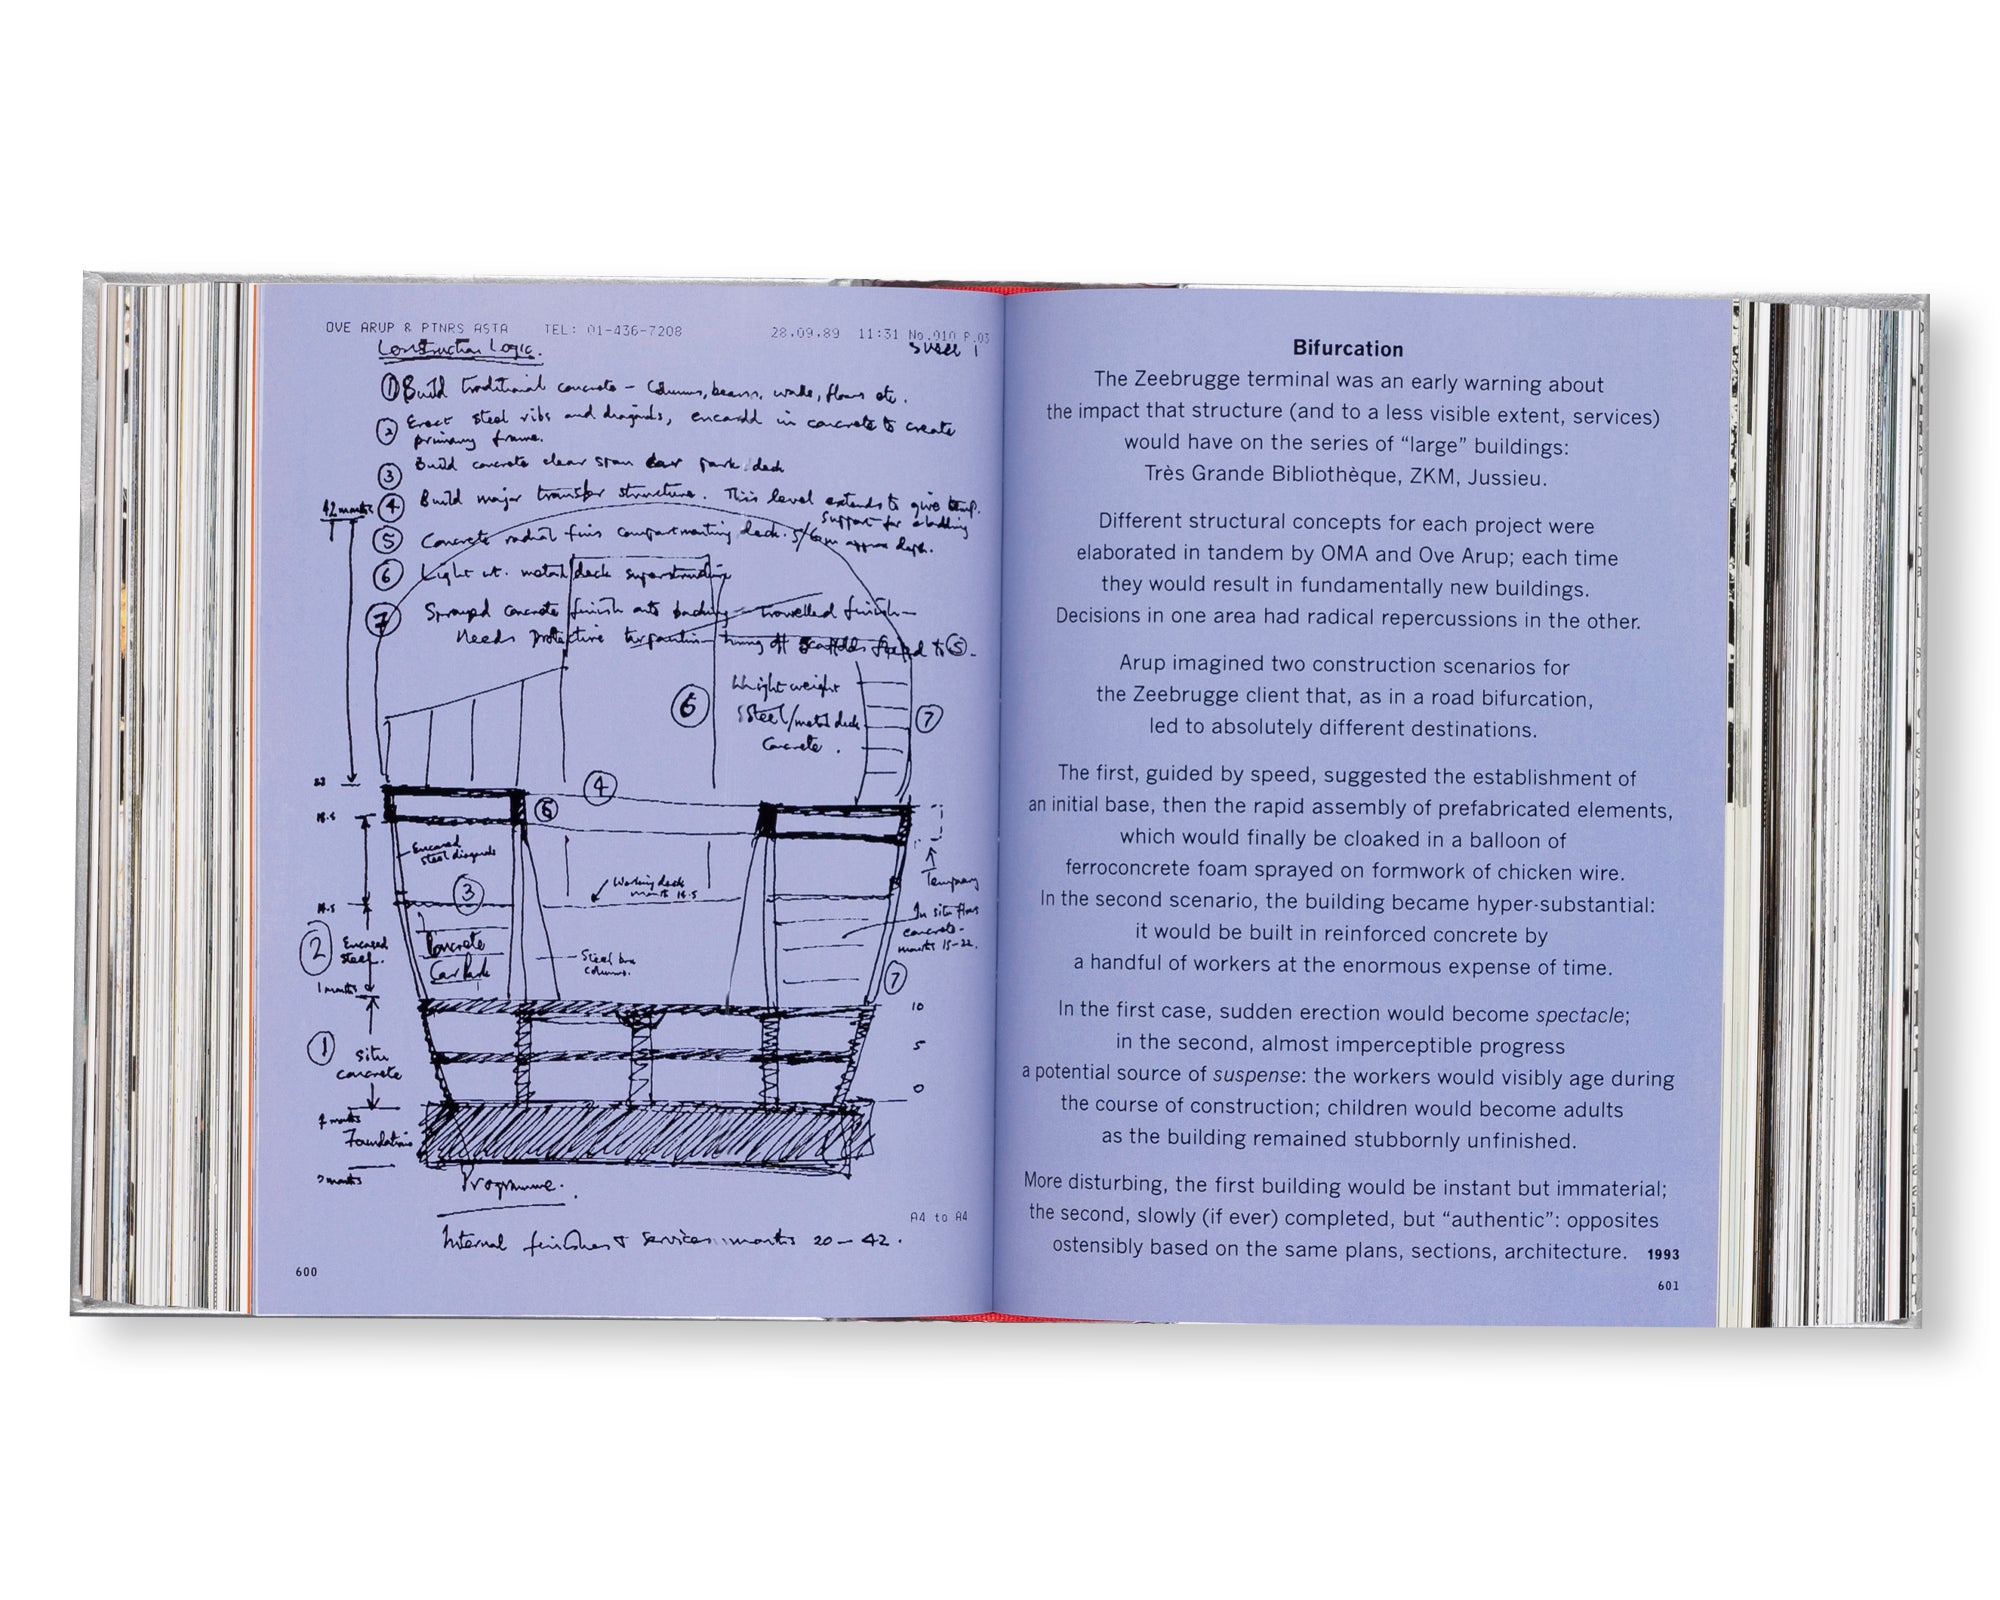 OVE ARUP & PTNRS ASTA TEL: 01-436-7208 28.09.89 11:31 No.010 P.03
Construction Logic.
① Build traditional concrete – Columns, beams, walls, floors etc.
② Erect steel ribs and diagrids, encased in concrete to create
primary frame.
③ Build concrete clear span car park deck
④ Build major transfer structure. This level extends to give temp.
support for cladding
42 months
⑤ Concrete radial fins compartmenting deck. 5/6m approx depth.
⑥ Light wt. metal deck superstructure
⑦ Sprayed concrete finish onto backing – trowelled finish –
Needs protective tarpaulin hung off scaffolds fixed to ⑤.
⑥
Light weight
Steel/metal deck
Concrete.
⑦
④
⑤
18.5
Encased
steel diagrids
③
Working deck
month 18.5
Temporary
In situ floors
concrete-
months 15-22.
②
Encased
steel.
Concrete
Car Park
Steel box
columns.
⑦
months
10
①
situ
concrete
5
0
months
Foundations
months
Programme.
A4 to A4
Internal finishes & services months 20 – 42.
600
Bifurcation
The Zeebrugge terminal was an early warning about
the impact that structure (and to a less visible extent, services)
would have on the series of “large” buildings:
Très Grande Bibliothèque, ZKM, Jussieu.
Different structural concepts for each project were
elaborated in tandem by OMA and Ove Arup; each time
they would result in fundamentally new buildings.
Decisions in one area had radical repercussions in the other.
Arup imagined two construction scenarios for
the Zeebrugge client that, as in a road bifurcation,
led to absolutely different destinations.
The first, guided by speed, suggested the establishment of
an initial base, then the rapid assembly of prefabricated elements,
which would finally be cloaked in a balloon of
ferroconcrete foam sprayed on formwork of chicken wire.
In the second scenario, the building became hyper-substantial:
it would be built in reinforced concrete by
a handful of workers at the enormous expense of time.
In the first case, sudden erection would become spectacle;
in the second, almost imperceptible progress
a potential source of suspense: the workers would visibly age during
the course of construction; children would become adults
as the building remained stubbornly unfinished.
More disturbing, the first building would be instant but immaterial;
the second, slowly (if ever) completed, but “authentic”: opposites
ostensibly based on the same plans, sections, architecture. 1993
601